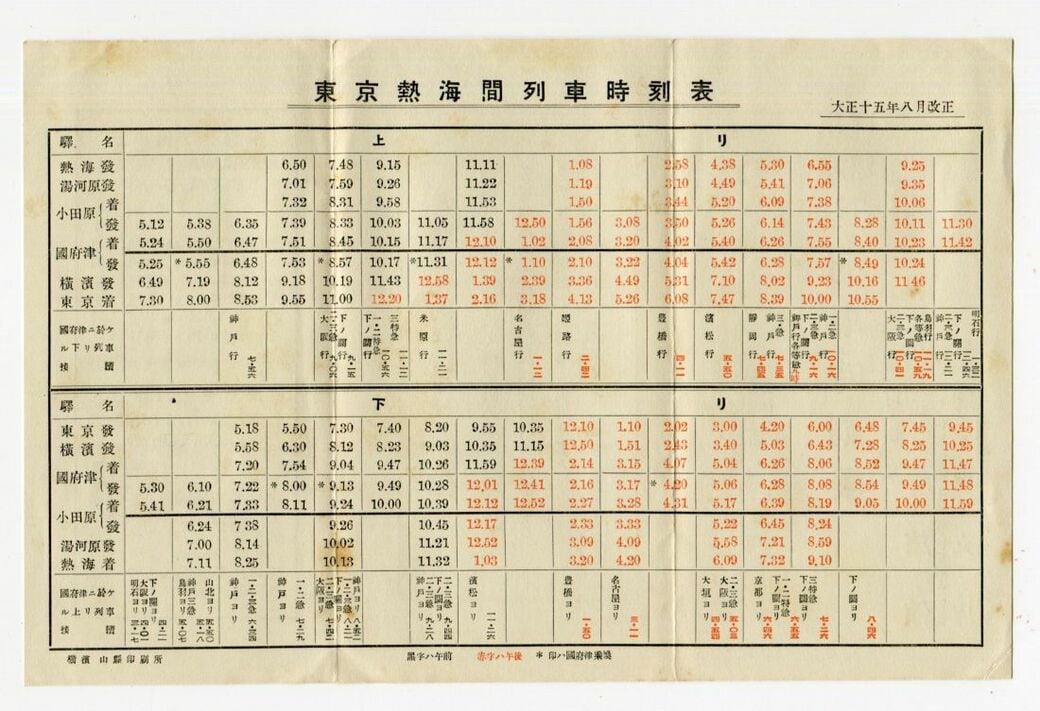 東京熱海間列車時刻表
大正十五年八月改正
驛名 上リ
熱海發 6.50 7.48 9.15 11.11 1.08 2.58 4.38 5.30 6.55 9.25
湯河原發 7.01 7.59 9.26 11.22 1.19 3.10 4.49 5.41 7.06 9.35
小田原 着 7.32 8.31 9.58 11.53 1.50 3.44 5.20 6.09 7.38 10.06
發 5.12 5.38 6.35 7.39 8.33 10.03 11.05 11.58 12.50 1.56 3.08 3.50 5.26 6.14 7.43 8.28 10.11 11.30
國府津 着 5.24 5.50 6.47 7.51 8.45 10.15 11.17 12.10 1.02 2.08 3.20 4.02 5.40 6.26 7.55 8.40 10.23 11.42
發 5.25 *5.55 6.48 7.53 *8.57 10.17 *11.31 12.12 *1.10 2.10 3.22 4.04 5.42 6.28 7.57 *8.49 10.24
橫濱發 6.49 7.19 8.12 9.18 10.19 11.43 12.58 1.39 2.39 3.36 4.49 5.31 7.10 8.02 9.23 10.16 11.46
東京着 7.30 8.00 8.53 9.55 11.00 12.20 1.37 2.16 3.18 4.13 5.26 6.08 7.47 8.39 10.00 10.55
國府津ニ於ケル下リ列車接續
神戸行 七・五六
米原行 一一・二一
名古屋行 一・一二
姫路行 二・二一
豊橋行 四・一一
濱松行 五・五〇
驛名 下リ
東京發 5.18 5.50 7.30 7.40 8.20 9.55 10.35 12.10 1.10 2.02 3.00 4.20 6.00 6.48 7.45 9.45
橫濱發 5.58 6.30 8.12 8.23 9.03 10.35 11.15 12.50 1.51 2.43 3.40 5.03 6.43 7.28 8.25 10.25
國府津 着 7.20 7.54 9.04 9.47 10.26 11.59 12.39 2.14 3.15 4.07 5.04 6.26 8.06 8.52 9.47 11.47
發 5.30 6.10 7.22 *8.00 *9.13 9.49 10.28 12.01 12.41 2.16 3.17 *4.20 5.06 6.28 8.08 8.54 9.49 11.48
小田原 着 5.41 6.21 7.33 8.11 9.24 10.00 10.39 12.12 12.52 2.27 3.28 4.31 5.17 6.39 8.19 9.05 10.00 11.59
發 6.24 7.38 9.26 10.45 12.17 2.33 3.33 5.22 6.45 8.24
湯河原發 7.00 8.14 10.02 11.21 12.52 3.09 4.09 5.58 7.21 8.59
熱海着 7.11 8.25 10.13 11.32 1.03 3.20 4.20 6.09 7.32 9.10
國府津ニ於ケル上リ列車接續
神戸ヨリ
濱松ヨリ 一一・二六
豊橋ヨリ 一・五〇
名古屋ヨリ 三・一一
下ノ關ヨリ 八・四六
橫濱 山縣印刷所
黑字ハ午前 赤字ハ午後 * 印ハ國府津乘換